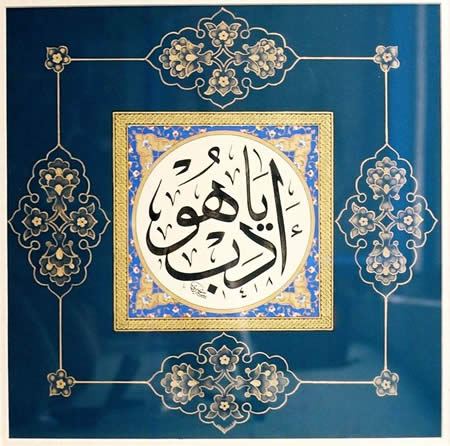 أدب
يا هو
١٤١٨